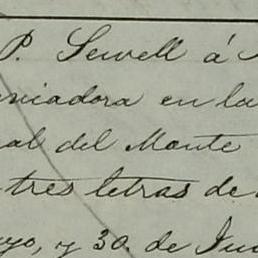 P. Sewell á
niadora en la
al del Monte
tres letras de
yo, y 30 de Jun